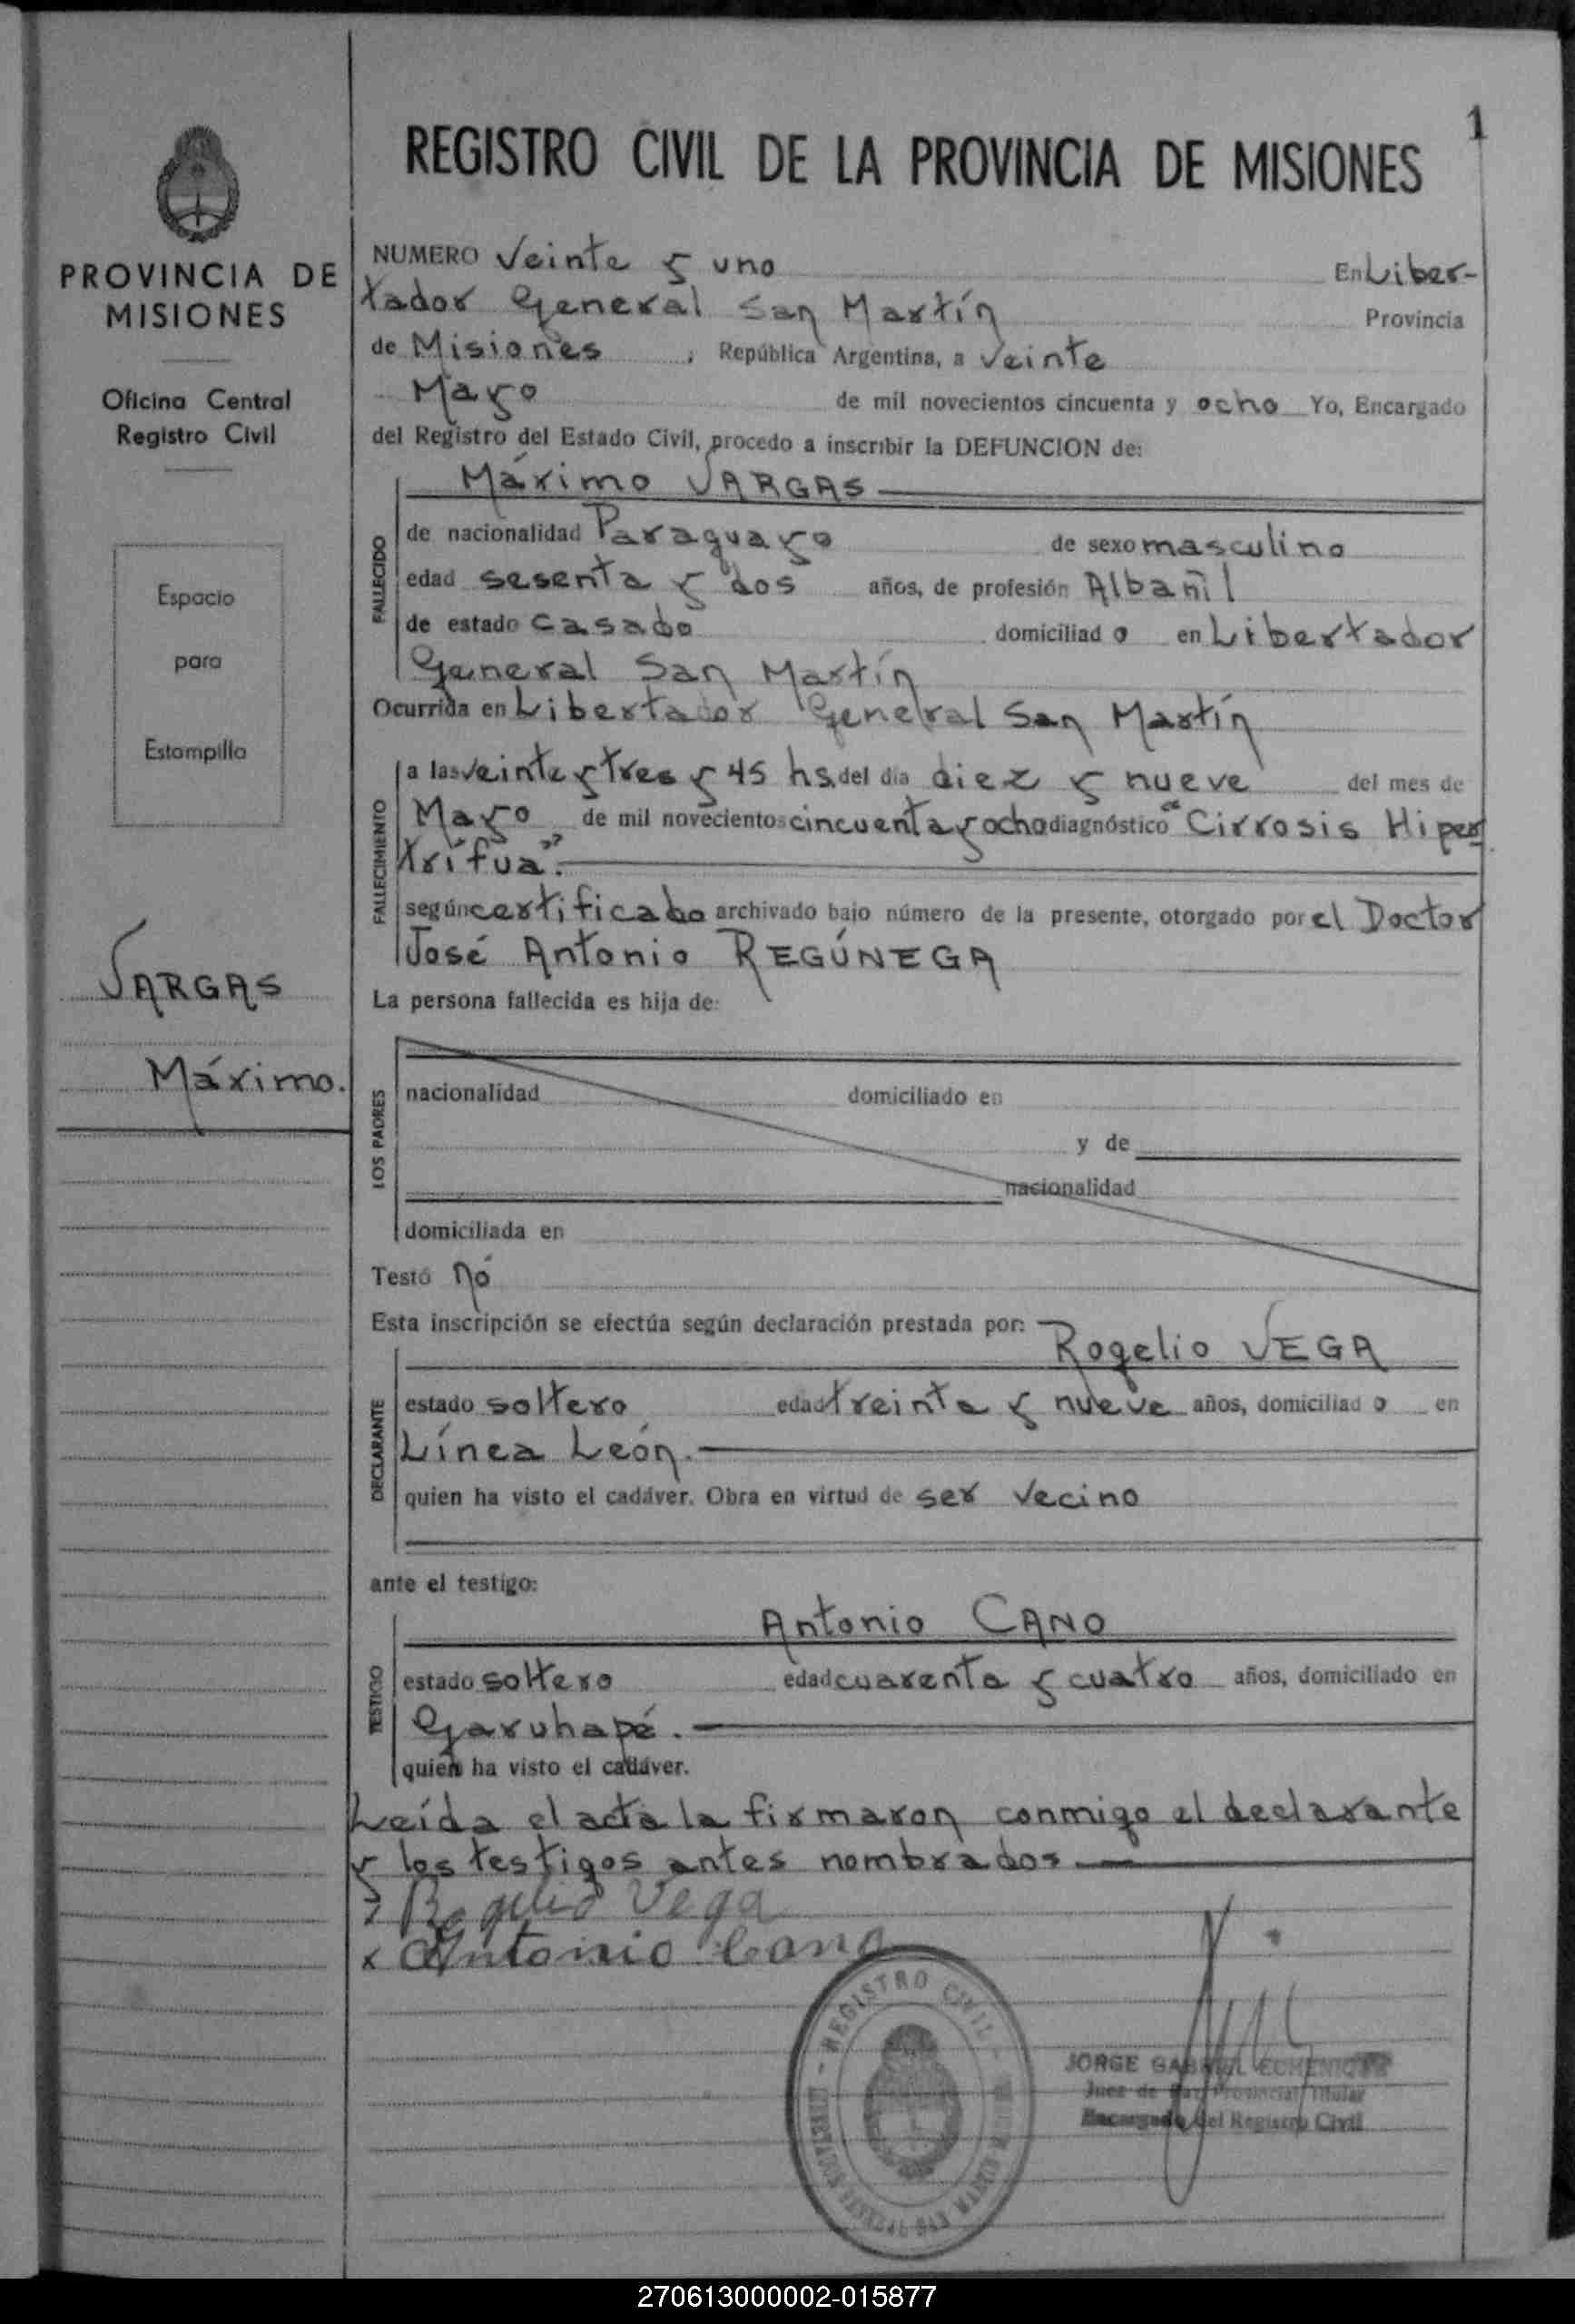 1
REGISTRO CIVIL DE LA PROVINCIA DE MISIONES
PROVINCIA DE
MISIONES
Oficina Central
Registro Civil
Espacio
para
Estampilla
VARGAS
Máximo.
NUMERO Veinte y uno En Liber-
tador General San Martín Provincia
de Misiones, República Argentina, a Veinte
Mayo de mil novecientos cincuenta y ocho Yo, Encargado
del Registro del Estado Civil, procedo a inscribir la DEFUNCION de:
Máximo VARGAS
FALLECIDO
de nacionalidad Paraguayo de sexo masculino
edad sesenta y dos años, de profesión Albañil
de estado casado domiciliado en Libertador
General San Martín
Ocurrida en Libertador General San Martín
FALLECIMIENTO
a las veinte y tres y 45 hs. del día diez y nueve del mes de
Mayo de mil novecientos cincuenta y ocho diagnóstico "Cirrosis Hiper
trífua".
según certificado archivado bajo número de la presente, otorgado por el Doctor
José Antonio REGÚNEGA
La persona fallecida es hija de:
LOS PADRES
nacionalidad domiciliado en
y de
nacionalidad
domiciliada en
Testó nó
Esta inscripción se efectúa según declaración prestada por:
Rogelio VEGA
DECLARANTE
estado soltero edad treinta y nueve años, domiciliado en
Línea León.
quien ha visto el cadáver. Obra en virtud de ser vecino
ante el testigo:
Antonio CANO
TESTIGO
estado soltero edad cuarenta y cuatro años, domiciliado en
Garuhapé.
quien ha visto el cadáver.
Leída el acta la firmaron conmigo el declarante
y los testigos antes nombrados.
x Rogelio Vega
x Antonio Cano
REGISTRO CIVIL
JORGE GABRIEL ECHENIQUE
Juez de Paz Provincial Titular
Encargado del Registro Civil
270613000002-015877